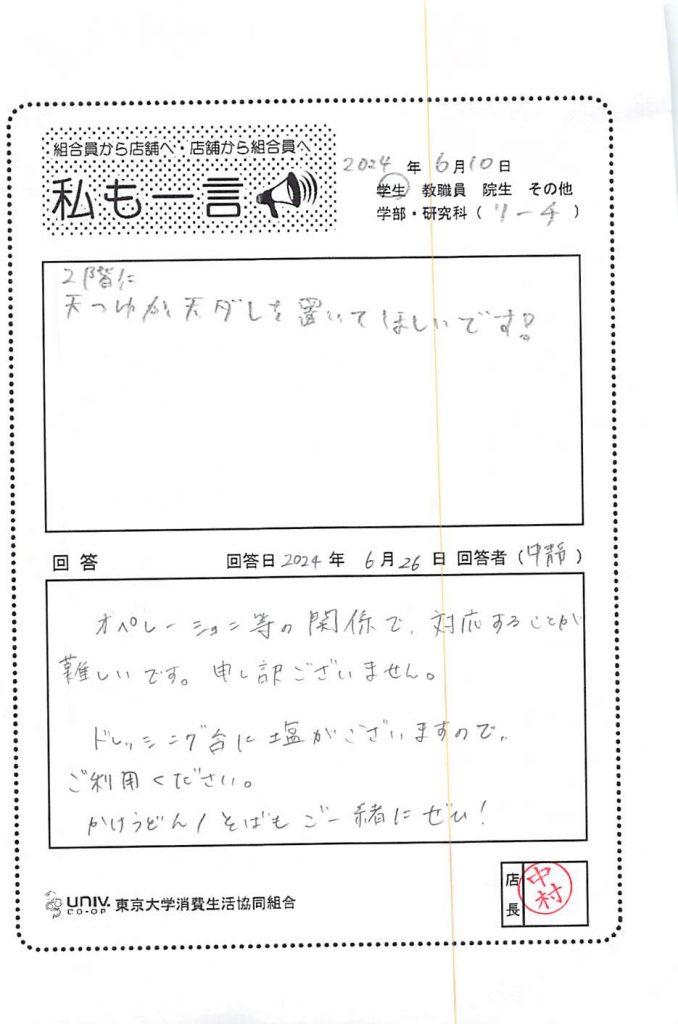 組合員から店舗へ 店舗から組合員へ
私も一言
2024 年 6月10日
学生 教職員 院生 その他
学部・研究科 ( リーチ )
2階に
天つゆか天ダシを置いてほしいです!
回答 回答日 2024 年 6月26日 回答者 (中静)
オペレーション等の関係で、対応することが
難しいです。申し訳ございません。
ドレッシング台に塩がございますので、
ご利用ください。
かけうどん/そばもご一緒にぜひ!
UNIV. CO-OP 東京大学消費生活協同組合
店長 中村